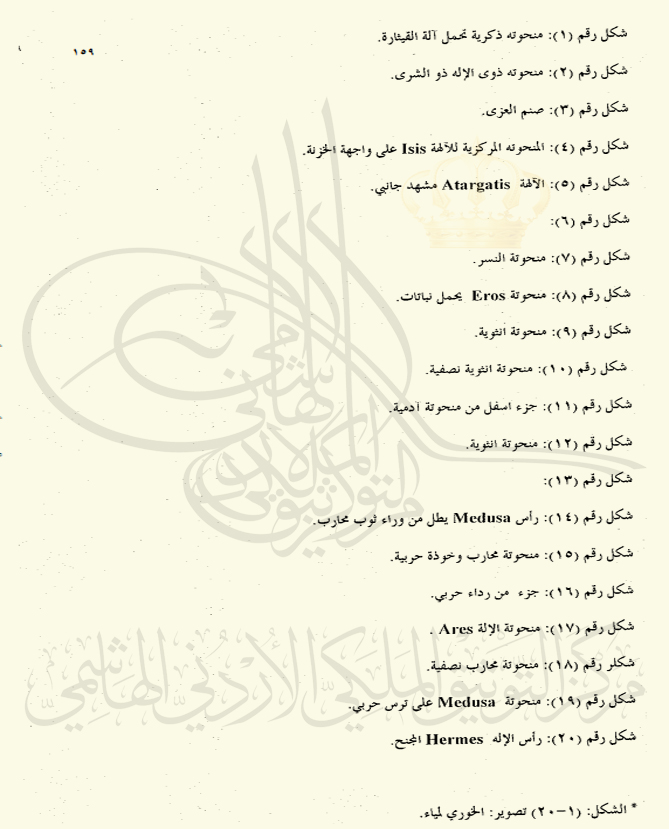 شكل رقم (١): منحوته ذكرية تحمل آلة القيثارة.
١٥٩
شكل رقم (٢): منحوته ذوى الإله ذو الشرى.
شكل رقم (٣): صنم العزى.
شكل رقم (٤): المنحوته المركزية للآلهة Isis على واجهة الخزنة.
شكل رقم (٥): الآلهة Atargatis مشهد جانبي.
شكل رقم (٦):
شكل رقم (٧): منحوتة النسر.
شكل رقم (٨): منحوتة Eros يحمل نباتات.
شكل رقم (٩): منحوتة انثوية.
شكل رقم (١٠): منحوتة انثوية نصفية.
شكل رقم (١١): جزء اسفل من منحوتة آدمية.
شكل رقم (١٢): منحوتة انثوية.
شكل رقم (١٣):
شكل رقم (١٤): رأس Medusa يطل من وراء ثوب محارب.
شكل رقم (١٥): منحوتة محارب وخوذة حربية.
شكل رقم (١٦): جزء من رداء حربي.
شكل رقم (١٧): منحوتة الإلة Ares .
شكلر رقم (١٨): منحوتة محارب نصفية.
شكل رقم (١٩): منحوتة Medusa على ترس حربي.
شكل رقم (٢٠): رأس الإله Hermes المجنح.
* الشكل: (١-٢٠) تصوير: الخوري لمياء.
مركز التوثيق الملكي الأردني الهاشمي